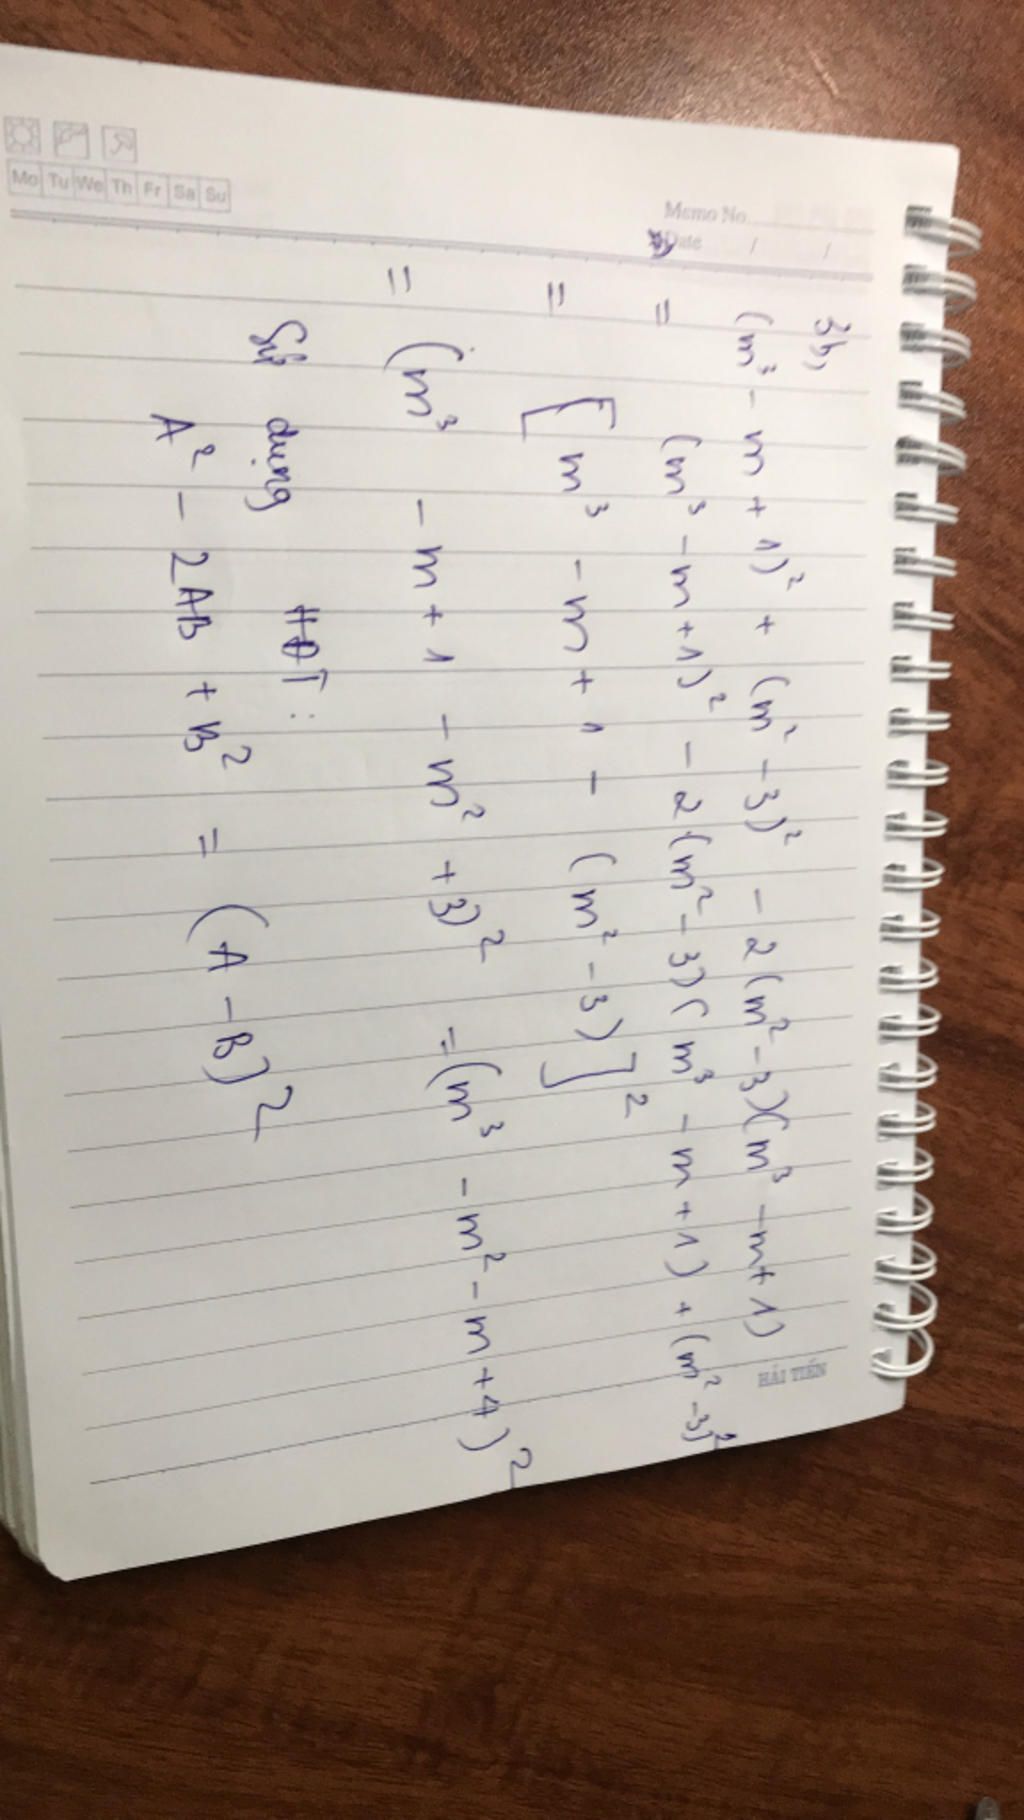 Mo Tu We Th Fr Sa Su
Memo No.
Date / /
3b,
(m³ - m + 1)² + (m² - 3)² - 2(m² - 3)(m³ - m + 1)
= (m³ - m + 1)² - 2(m² - 3)(m³ - m + 1) + (m² - 3)²
= [m³ - m + 1 - (m² - 3)]²
= (m³ - m + 1 - m² + 3)² = (m³ - m² - m + 4)²
Sử dụng HĐT:
A² - 2AB + B² = (A - B)²
HẢI TIẾN